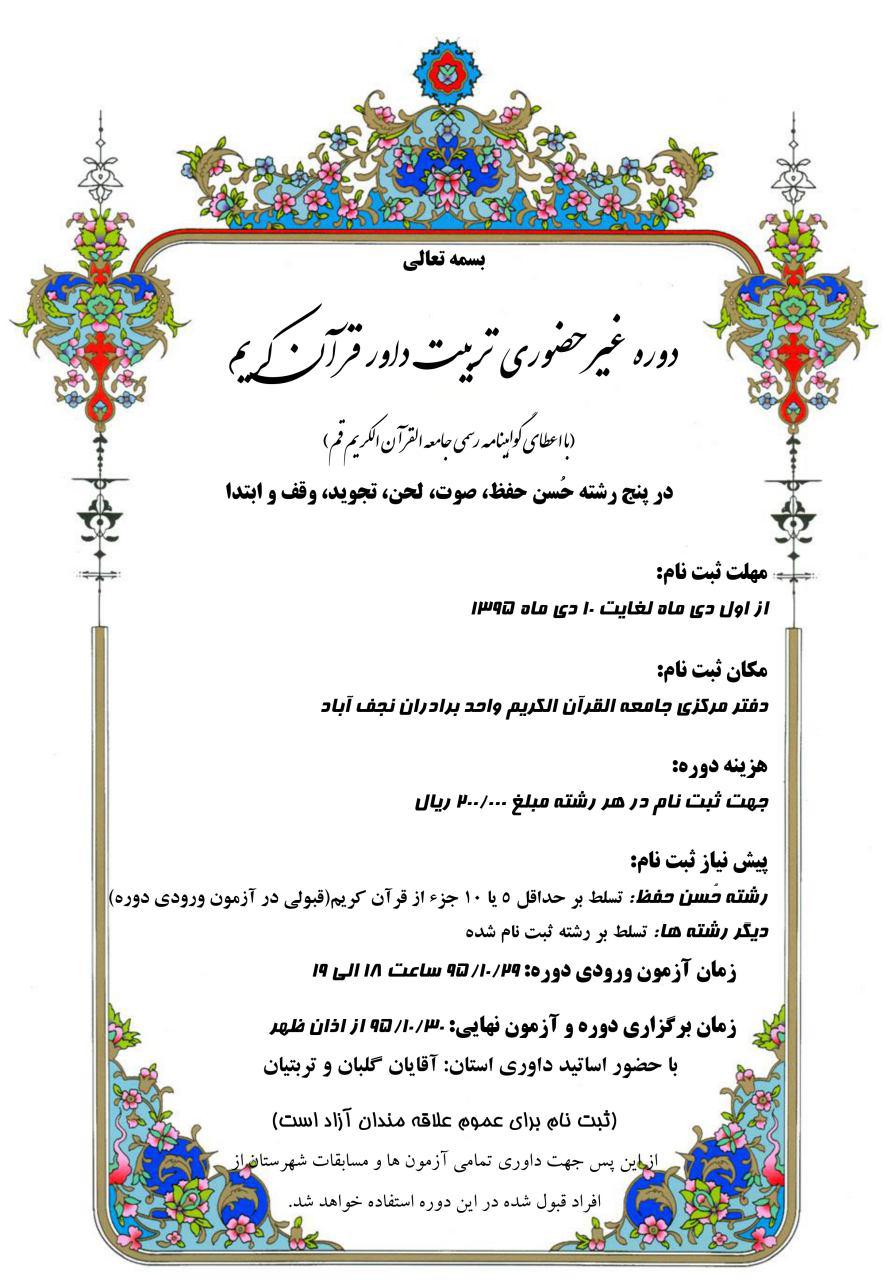 بسمه تعالی
دوره غیر حضوری تربیت داور قرآن کریم
(با اعطای گواهینامه رسمی جامعه القرآن الکریم قم)
در پنج رشته حُسن حفظ، صوت، لحن، تجوید، وقف و ابتدا
مهلت ثبت نام:
از اول دی ماه لغایت ۱۰ دی ماه ۱۳۹۵
مکان ثبت نام:
دفتر مرکزی جامعه القرآن الکریم واحد برادران نجف آباد
هزینه دوره:
جهت ثبت نام در هر رشته مبلغ ۲۰۰/۰۰۰ ریال
پیش نیاز ثبت نام:
رشته حُسن حفظ: تسلط بر حداقل ۵ یا ۱۰ جزء از قرآن کریم(قبولی در آزمون ورودی دوره)
دیگر رشته ها: تسلط بر رشته ثبت نام شده
زمان آزمون ورودی دوره: ۹۵/۱۰/۲۹ ساعت ۱۸ الی ۱۹
زمان برگزاری دوره و آزمون نهایی: ۹۵/۱۰/۳۰ از اذان ظهر
با حضور اساتید داوری استان: آقایان گلبان و تربتیان
(ثبت نام برای عموم علاقه مندان آزاد است)
از این پس جهت داوری تمامی آزمون ها و مسابقات شهرستان از
افراد قبول شده در این دوره استفاده خواهد شد.